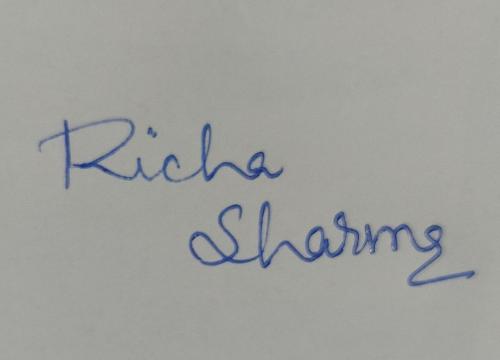 Richa
Sharma